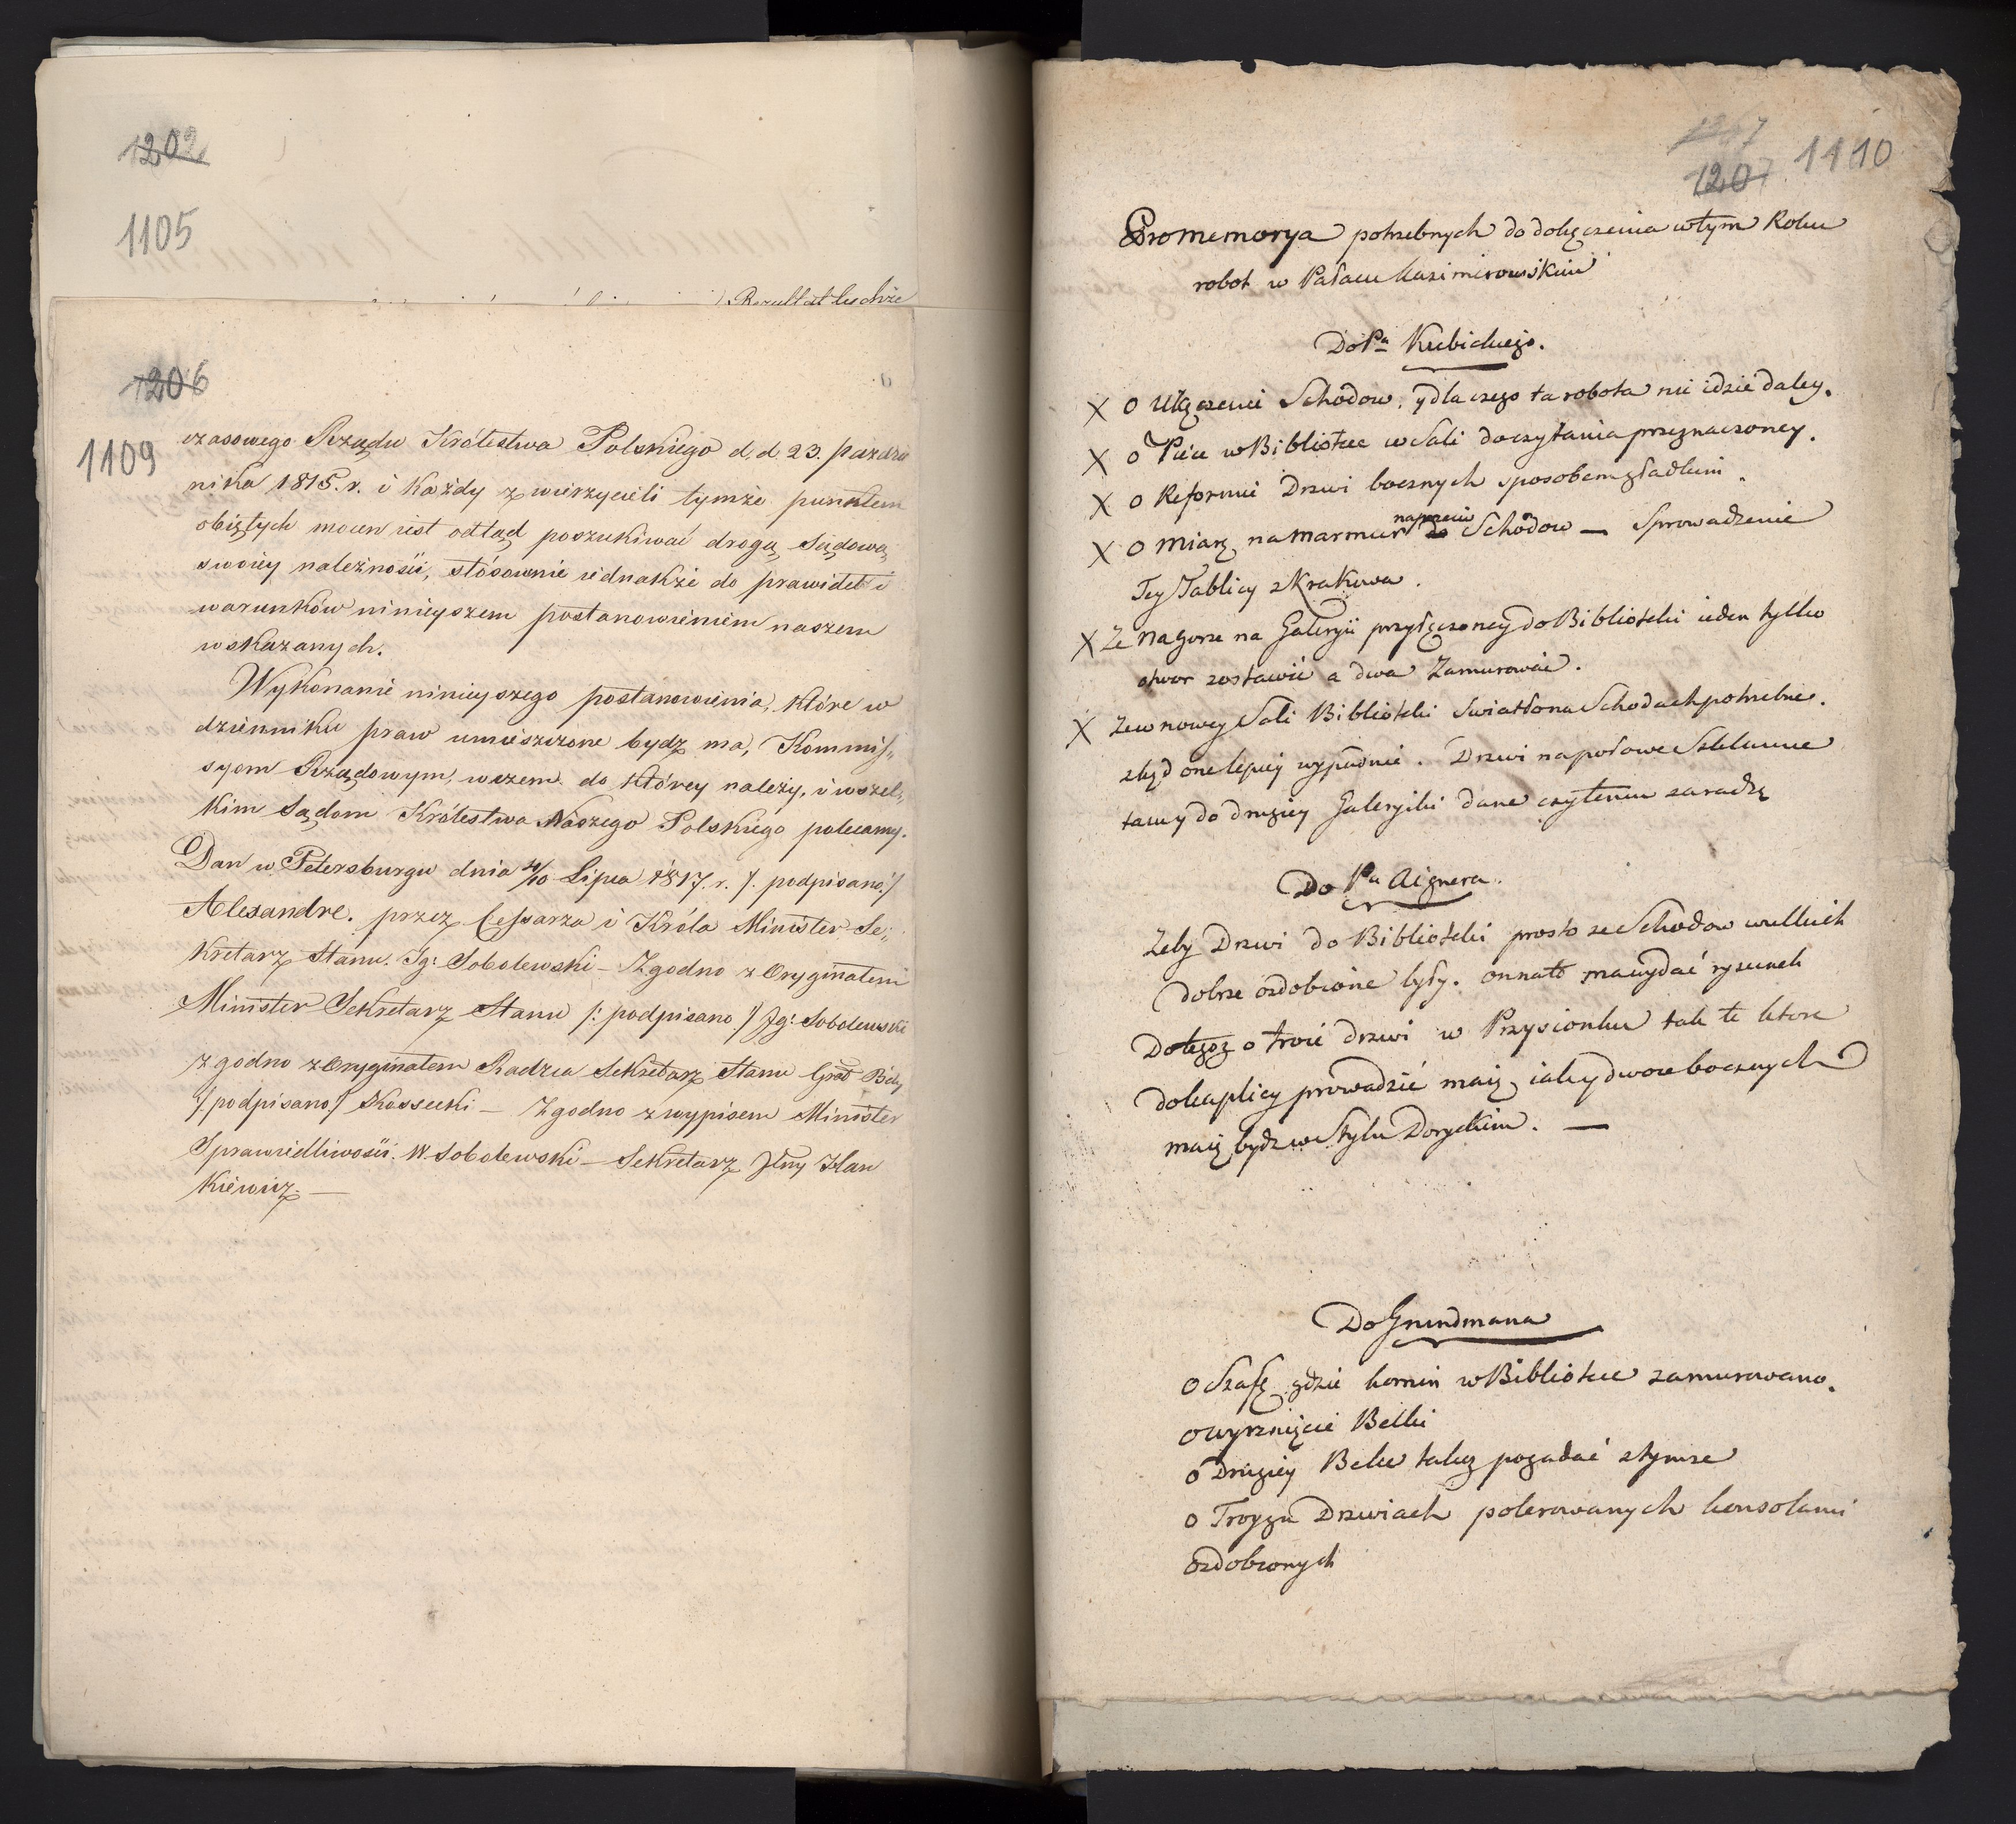 1202
1105
Rezultat tychże
1206
1109
czasowego Rządu Królestwa Polskiego d. d. 23. paździe
nika 1815. r. i każdy z wierzycieli tymże punktem
obiętych mocen iest odtąd poszukiwać drogą Sądową
swoiey należności, stósownie iednakże do prawideł i
warunków ninieyszem postanowieniem naszem
wskazanych.
Wykonanie ninieyszego postanowienia, które w
dzienniku praw umieszczone bydź ma, Kommis„
syom Rządowym, wczem do którey należy, i wszel„
kim Sądom Królestwa Naszego Polskiego polecamy.
Dan w Petersburgu dnia 4/10 Lipca 1817. r. /. podpisano:/
Alexandre. przez Cessarza i Króla Minister Se„
kretarz Stanu. Ig: Sobolewski – Zgodno z Oryginałem
Minister Sekretarz Stanu /: podpisano :/ Jg: Sobolewski
zgodno z Oryginałem Radzca Sekretarz Stanu Gnał Bdy
/: podpisano:/ Kossecki – Zgodno z wypisem Minister
Sprawiedliwości. W. Sobolewski – Sekretarz Jlny Han
kiewicz. —
1207
1207 1110
Promemorya potrzebnych do dołączenia w tym Roku
robot w Pałacu Kazimirowskim
Do Pa Kubickiego.
X O Ukączenie Schodow, y dla czego ta robota nie idzie daley.
X O Piecu w Bibliotece w Sali do czytania przeznaczoney.
X O Reformie Drzwi bocznych sposobem gładkim.
X O Miarę na marmur naprzeciw Schodow — Sprowadzenie
Tey Tablicy z Krakowa.
X Ze na gorze na Galeryi przyłączoney do Biblioteki ieden tylko
otwor zostawić a dwa Zamurować.
X Ze w nowey Sali Biblioteki Swiatło na Schodach potrzebne.
ztąd one lepiey wypadnie. Drzwi napołowe Szklanne
tamy do drugiey Galeryiki dane czytemu zaradzą
Do Pa Aignera.
Zeby Drzwi do Biblioteki prosto ze Schodow wielkich
dobrze ozdobione były. on nato ma wydać rysunek
Do tegoż o troie drzwi w Przysionku tak te ktore
do kaplicy prowadzić maią, iako y dwoie bocznych
maią bydz w Stylu Doryckim. —
Do Grundmana
O Szafę gdzie komin w Bibliotece zamurowano.
O wyrznięcie Belki
O Drugiey Belce takoż pogadać z tymze
O Troygu Drzwiach polerowanych konsolami
ozdobionych